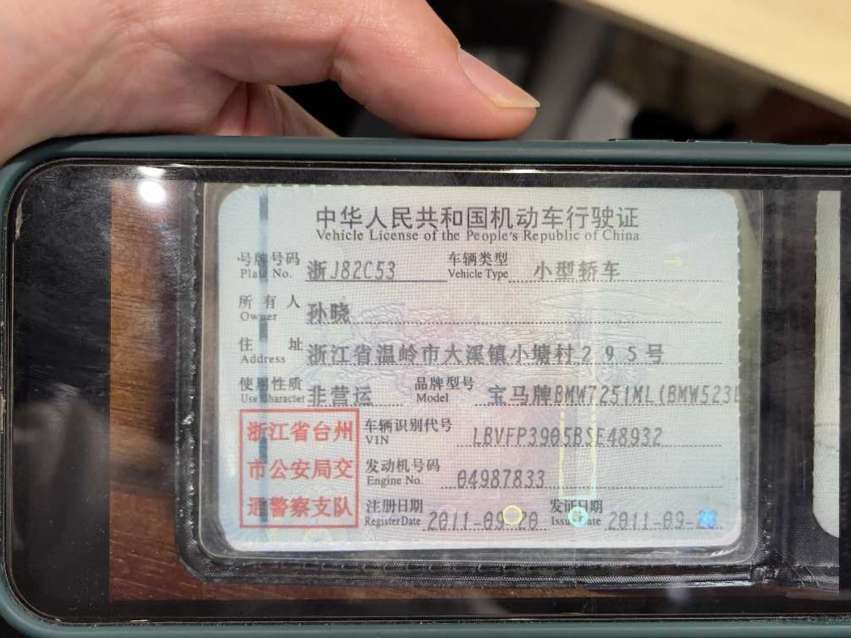 中华人民共和国机动车行驶证
Vehicle License of the People's Republic of China
号牌号码 浙J82C53 车辆类型 小型轿车
Plate No. Vehicle Type
所有人 孙晓
Owner
住址 浙江省温岭市大溪镇小塘村295号
Address
使用性质 非营运 品牌型号 宝马牌BMW7251ML(BMW523L
Use Character Model
浙江省台州
市公安局交
通警察支队
车辆识别代号 LBVFP3905BSE48932
VIN
发动机号码 04987833
Engine No.
注册日期 2011-09-20 发证日期 2011-09-
Register Date Issue Date